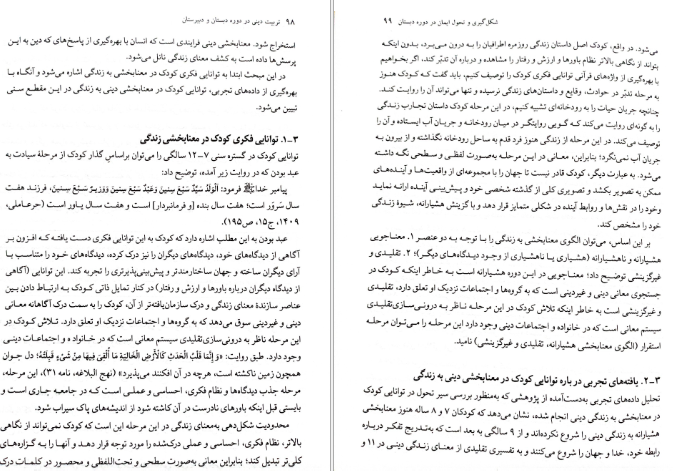 ۹۸ تربیت دینی در دوره دبستان و دبیرستان
استخراج شود. معنابخشی دینی فرایندی است که انسان با بهره‌گیری از پاسخ‌های که دین به این
پرسش‌ها داده است به کشف معنای زندگی نائل می‌شود.
در این مبحث ابتدا به توانایی فکری کودک در معنابخشی به زندگی اشاره می‌شود و آنگاه با
بهره‌گیری از داده‌های تجربی، توانایی کودک در معنابخشی دینی به زندگی در این مقطع سنی
تبیین می‌شود.
۳-۱. توانایی فکری کودک در معنابخشی زندگی
توانایی کودک در گستره سنی ۷-۱۲ سالگی را می‌توان براساس گذار کودک از مرحلهٔ سیادت به
عبد بودن که در روایت زیر آمده، توضیح داد:
پیامبر خدا ﷺ فرمود: الْوَلَدُ سَيِّدٌ سَبْعَ سِنِينَ وَعَبْدٌ سَبْعَ سِنِينَ وَوَزِيرٌ سَبْعَ سِنِينَ، فرزند هفت
سال سَروَر است؛ هفت سال بنده [و فرمانبردار] است و هفت سال یاور است (حرعاملی،
۱۴۰۹، ج۱۵، ص۱۹۵).
عبد بودن به این مطلب اشاره دارد که کودک به این توانایی فکری دست یافته که افزون بر
آگاهی از دیدگاه‌های خود، دیدگاه‌های دیگران را نیز درک کرده، دیدگاه‌های خود را متناسب با
آرای دیگران ساخته و جهان ساختارمندتر و پیش‌بینی‌پذیرتری را تجربه کند. این توانایی (آگاهی
از دیدگاه دیگران درباره باورها و ارزش و رفتار) در کنار تمایل ذاتی کودک به ارتباط دادن بین
عناصر سازندهٔ معنای زندگی و درک سازمان‌یافته‌تر از آن، کودک را به سمت درک آگاهانه معانی
دینی و غیردینی سوق می‌دهد که به گروه‌ها و اجتماعات نزدیک او تعلق دارد. تلاش کودک در
این مرحله ناظر به درونی‌سازی تقلیدی سیستم معانی است که در خانواده و اجتماعات دینی
وجود دارد. طبق روایت: «وَ إِنَّمَا قَلْبُ الْحَدَثِ كَالْأَرْضِ الْخَالِيَةِ مَا أُلْقِيَ فِيهَا مِنْ شَيْءٍ قَبِلَتْهُ؛ دل جوان
همچون زمین ناکشته است، هرچه در آن افکنند می‌پذیرد» (نهج البلاغه، نامه ۳۱)، این
مرحله جذب دیدگاه‌ها و نظام فکری، احساسی و عملی است که در جامعه جاری است و
بایستی قبل اینکه باورهای نادرست در آن کاشته شود از اندیشه‌های پاک سیراب شود.
محدودیت شکل‌دهی به‌معنای زندگی در این مرحله این است که کودک نمی‌تواند از نگاهی
بالاتر، نظام فکری، احساسی و عملی درک‌شده را مورد توجه قرار دهد و آنها را به گزاره‌های
کلی‌تر تبدیل کند؛ بنابراین معانی به‌صورت سطحی و تحت‌اللفظی و محصور در کلمات درک
شکل‌گیری و تحول ایمان در دوره دبستان ۹۹
می‌شود. در واقع، کودک اصل داستان زندگی روزمره اطرافیان را به درون می‌برد، بدون اینکه
بتواند از نگاهی بالاتر نظام باورها و ارزش و رفتار را مشاهده و درباره آن تدبّر کند. اگر بخواهیم
با بهره‌گیری از واژه‌های قرآنی توانایی فکری کودک را توصیف کنیم، باید گفت که کودک هنوز
به مرحله تدبّر در حوادث، وقایع و داستان‌های زندگی نرسیده و تنها می‌تواند آن را روایت کند.
چنانچه جریان حیات را به رودخانه‌ای تشبیه کنیم، در این مرحله کودک داستان تجارب زندگی
را به گونه‌ای روایت می‌کند کـه گـویی روایتگـر در میان رودخانـه و جریـان آب ایستاده و آن را
توصیف می‌کند. در این مرحله از زندگی هنوز فرد قدم به ساحل رودخانه نگذاشته و از بیرون به
جریان آب نمی‌نگرد؛ بنابراین، معانی در این مرحله به‌صورت لفظی و سطحی نگه داشته
می‌شود. به عبارت دیگر، کودک قادر نیست تا جهان را با مجموعه‌ای از واقعیت‌ها و آینده‌های
ممکن به تصویر بکشد و تصویری کلی از گذشته شخصی خود و پیش‌بینی آینده ارائه نماید
وخود را در نقش‌ها و روابط آینده در شکلی متمایز قرار دهد و با گزینش هشیارانه، شیوهٔ زندگی
خود را مشخص کند.
بر این اساس، می‌توان الگوی معنابخشی به زندگی را با توجه به دو عنصر ۱. معناجویی
هشیارانه و ناهشیارانه (هشیاری یا ناهشیاری از وجود دیدگاه‌های دیگر)؛ ۲. تقلیدی و
غیرگزینشی توضیح داد؛ معناجویی در این دوره هشیارانه است به خاطر اینکه کودک در
جستجوی معانی دینی و غیردینی است که به گروه‌ها و اجتماعات نزدیک او تعلق دارد. تقلیدی
و غیرگزینشی است به خاطر اینکه تلاش کودک در این مرحله ناظر به درونی‌سازی تقلیدی
سیستم معانی است که در خانواده و اجتماعات دینی وجود دارد این مرحله را می‌توان مرحله
استقرار (الگوی معنابخشی هشیارانه، تقلیدی و غیرگزینشی) نامید.
۳-۲. یافته‌های تجربی درباره توانایی کودک در معنابخشی دینی به زندگی
تحلیل داده‌های تجربی به‌دست‌آمده از پژوهشی که به‌منظور بررسی سیر تحول در توانایی کودک
در معنابخشی به زندگی دینی انجام شده، نشان می‌دهد که کودکان ۷ و ۸ ساله هنوز معنابخشی
به زندگی دینی را شروع نکرده‌اند و از ۹ سالگی به بعد است که به‌تدریج تفکر درباره
رابطه خود، خدا و جهان را شروع می‌کنند و به تفسیری تقلیدی از معنای زندگی دینی در ۱۱ و